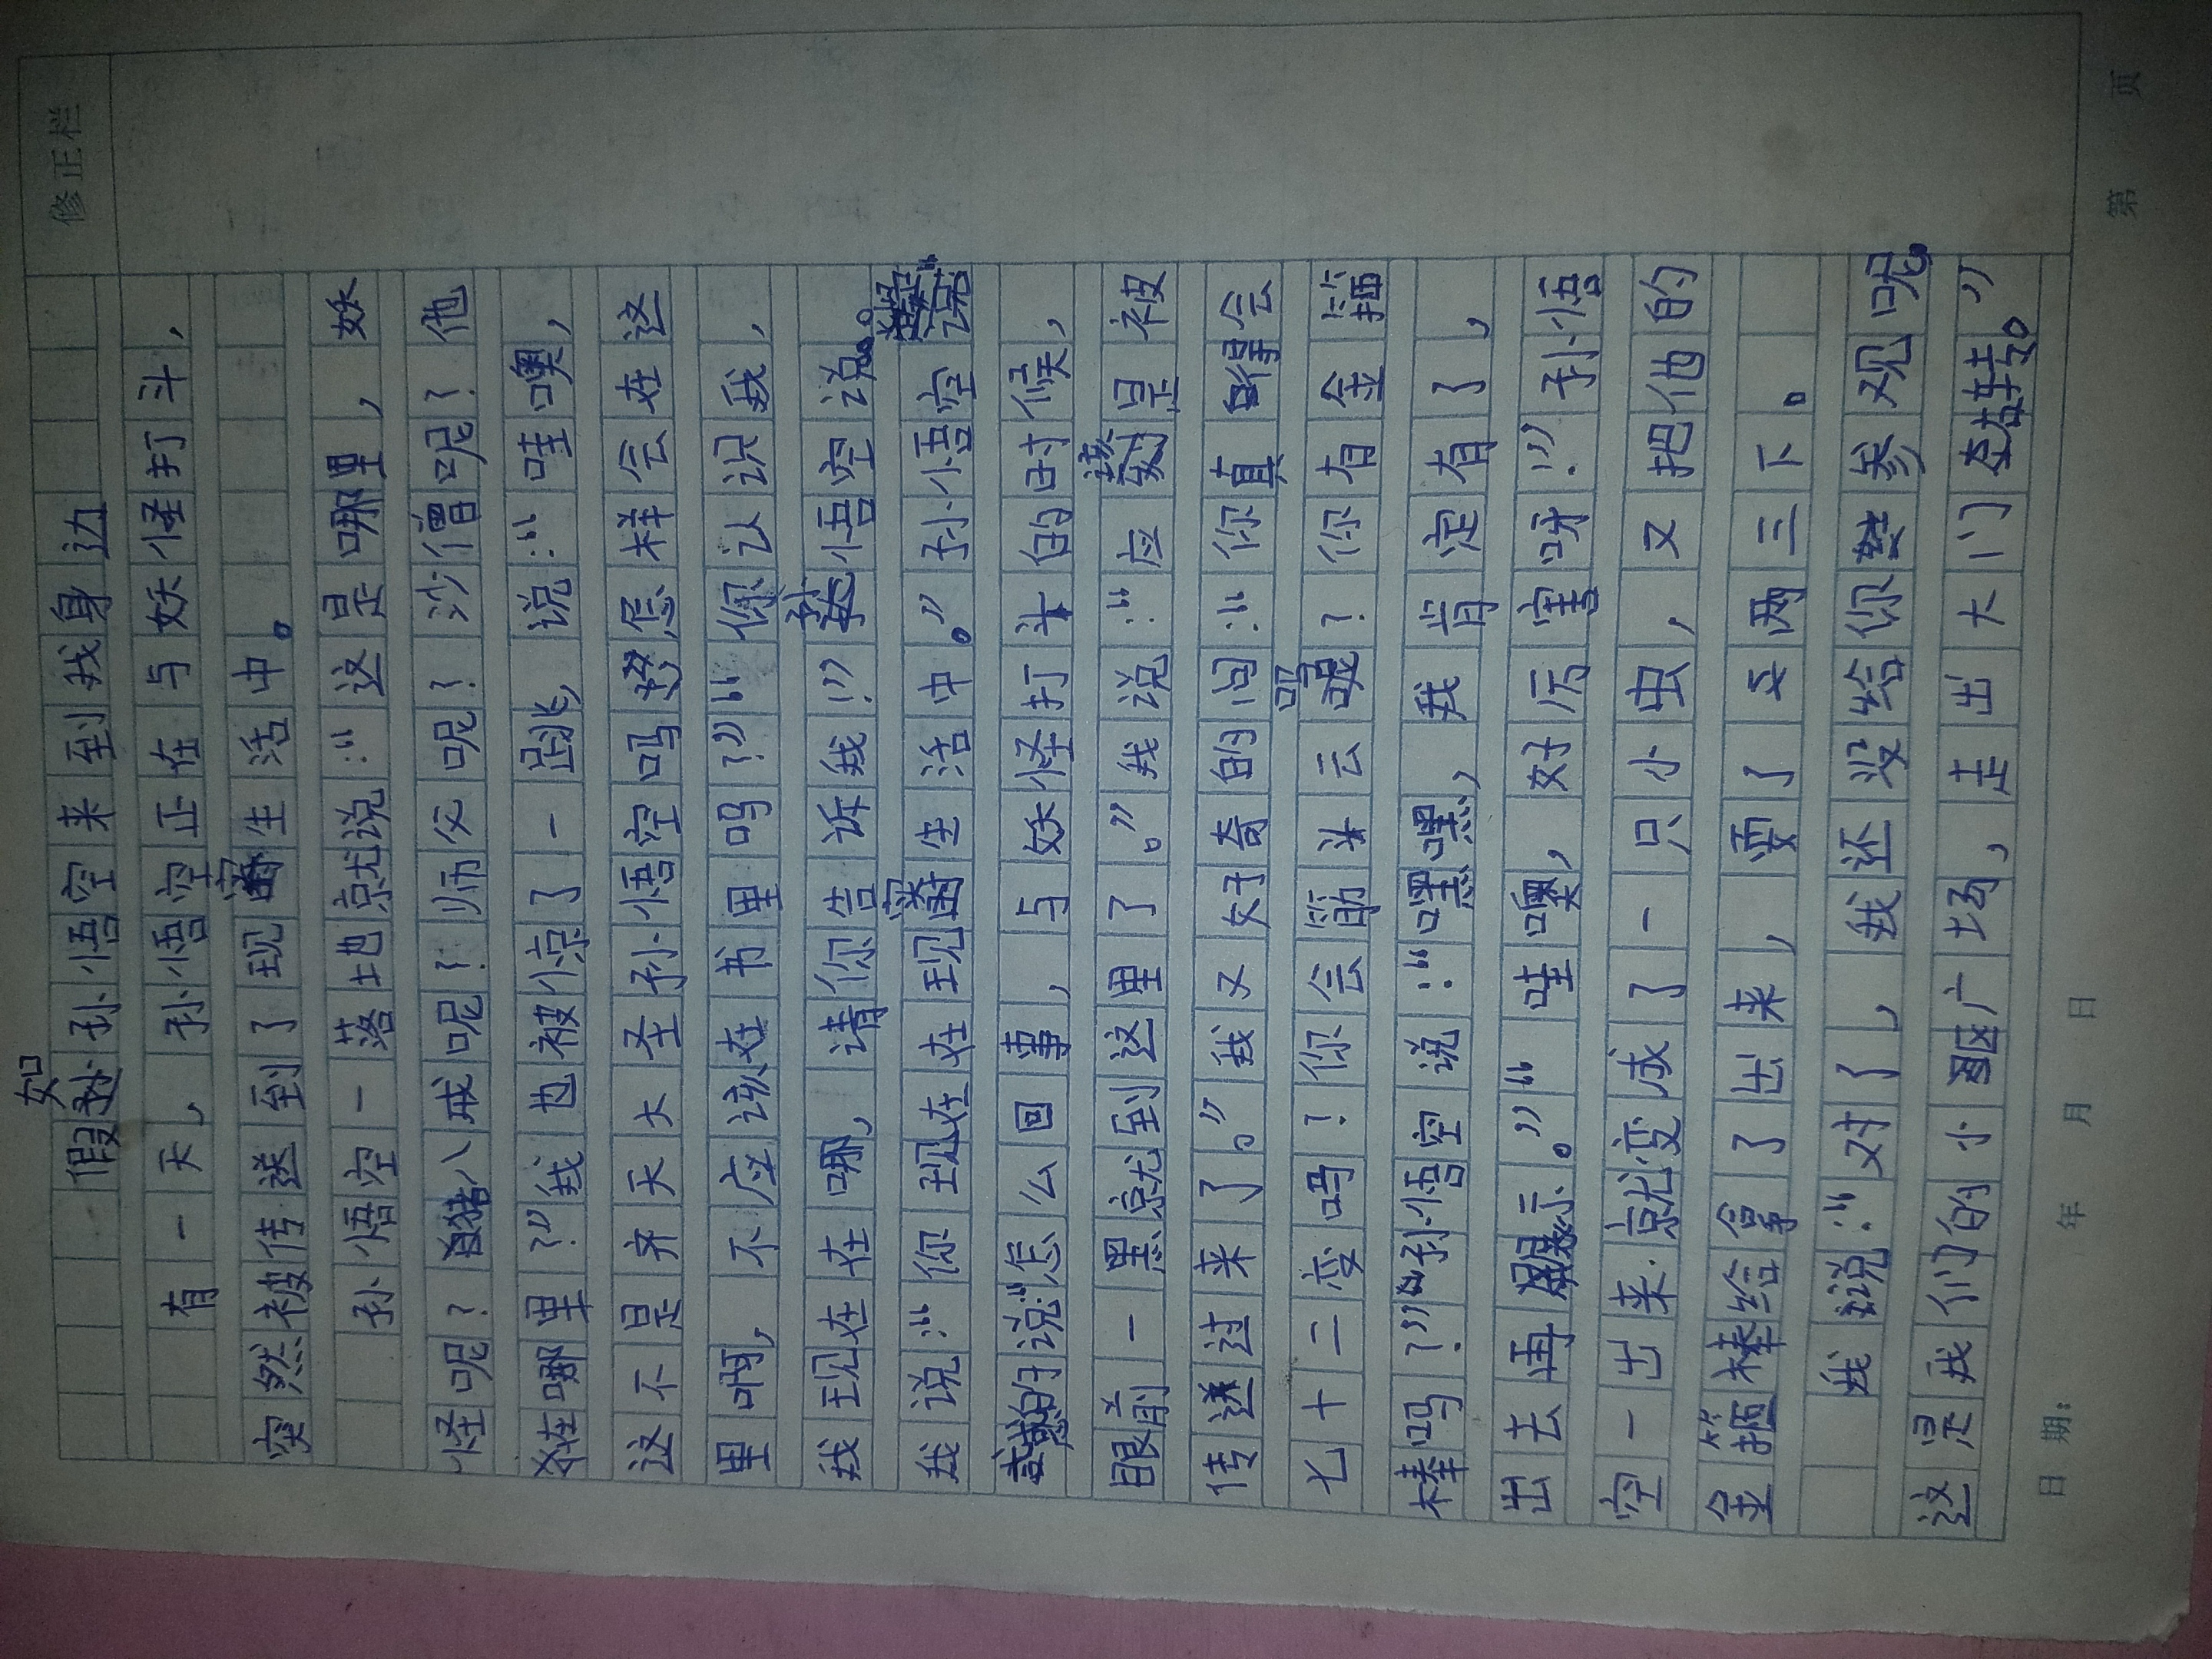 修正栏
假如孙悟空来到我身边
有一天,孙悟空正在与妖怪打斗,
突然被传送到了现实生活中。
孙悟空一落地就说:“这是哪里,妖
怪呢?猪八戒呢?师父呢?沙僧呢?他
在哪里?”我也被惊了一跳,说:“哇噢,
这不是齐天大圣孙悟空吗?怎样会在这
里啊,不应该在书里吗?”“你认识我,
我现在在哪,请你告诉我!”孙悟空说。
我说:“你现在在现实生活中。”孙悟空说
的说:“怎么回事,与妖怪打斗的时候,
眼前一黑就到这里了。”我说:“应该是被
传送过来了。”我又好奇的问:“你真得会
七十二变吗?你会筋斗云吗?你有金箍
棒吗?”孙悟空说:“嘿嘿,我肯定有了,
出去再展示。”“哇噢,好厉害呀!”孙悟
空一出来就变成了一只小虫,又把他的
金箍棒给拿了出来,耍了两三下。
我说:“对了,我还没给你参观呢。
这是我们的小区广场,走出大门
日期: 年 月 日
第 页